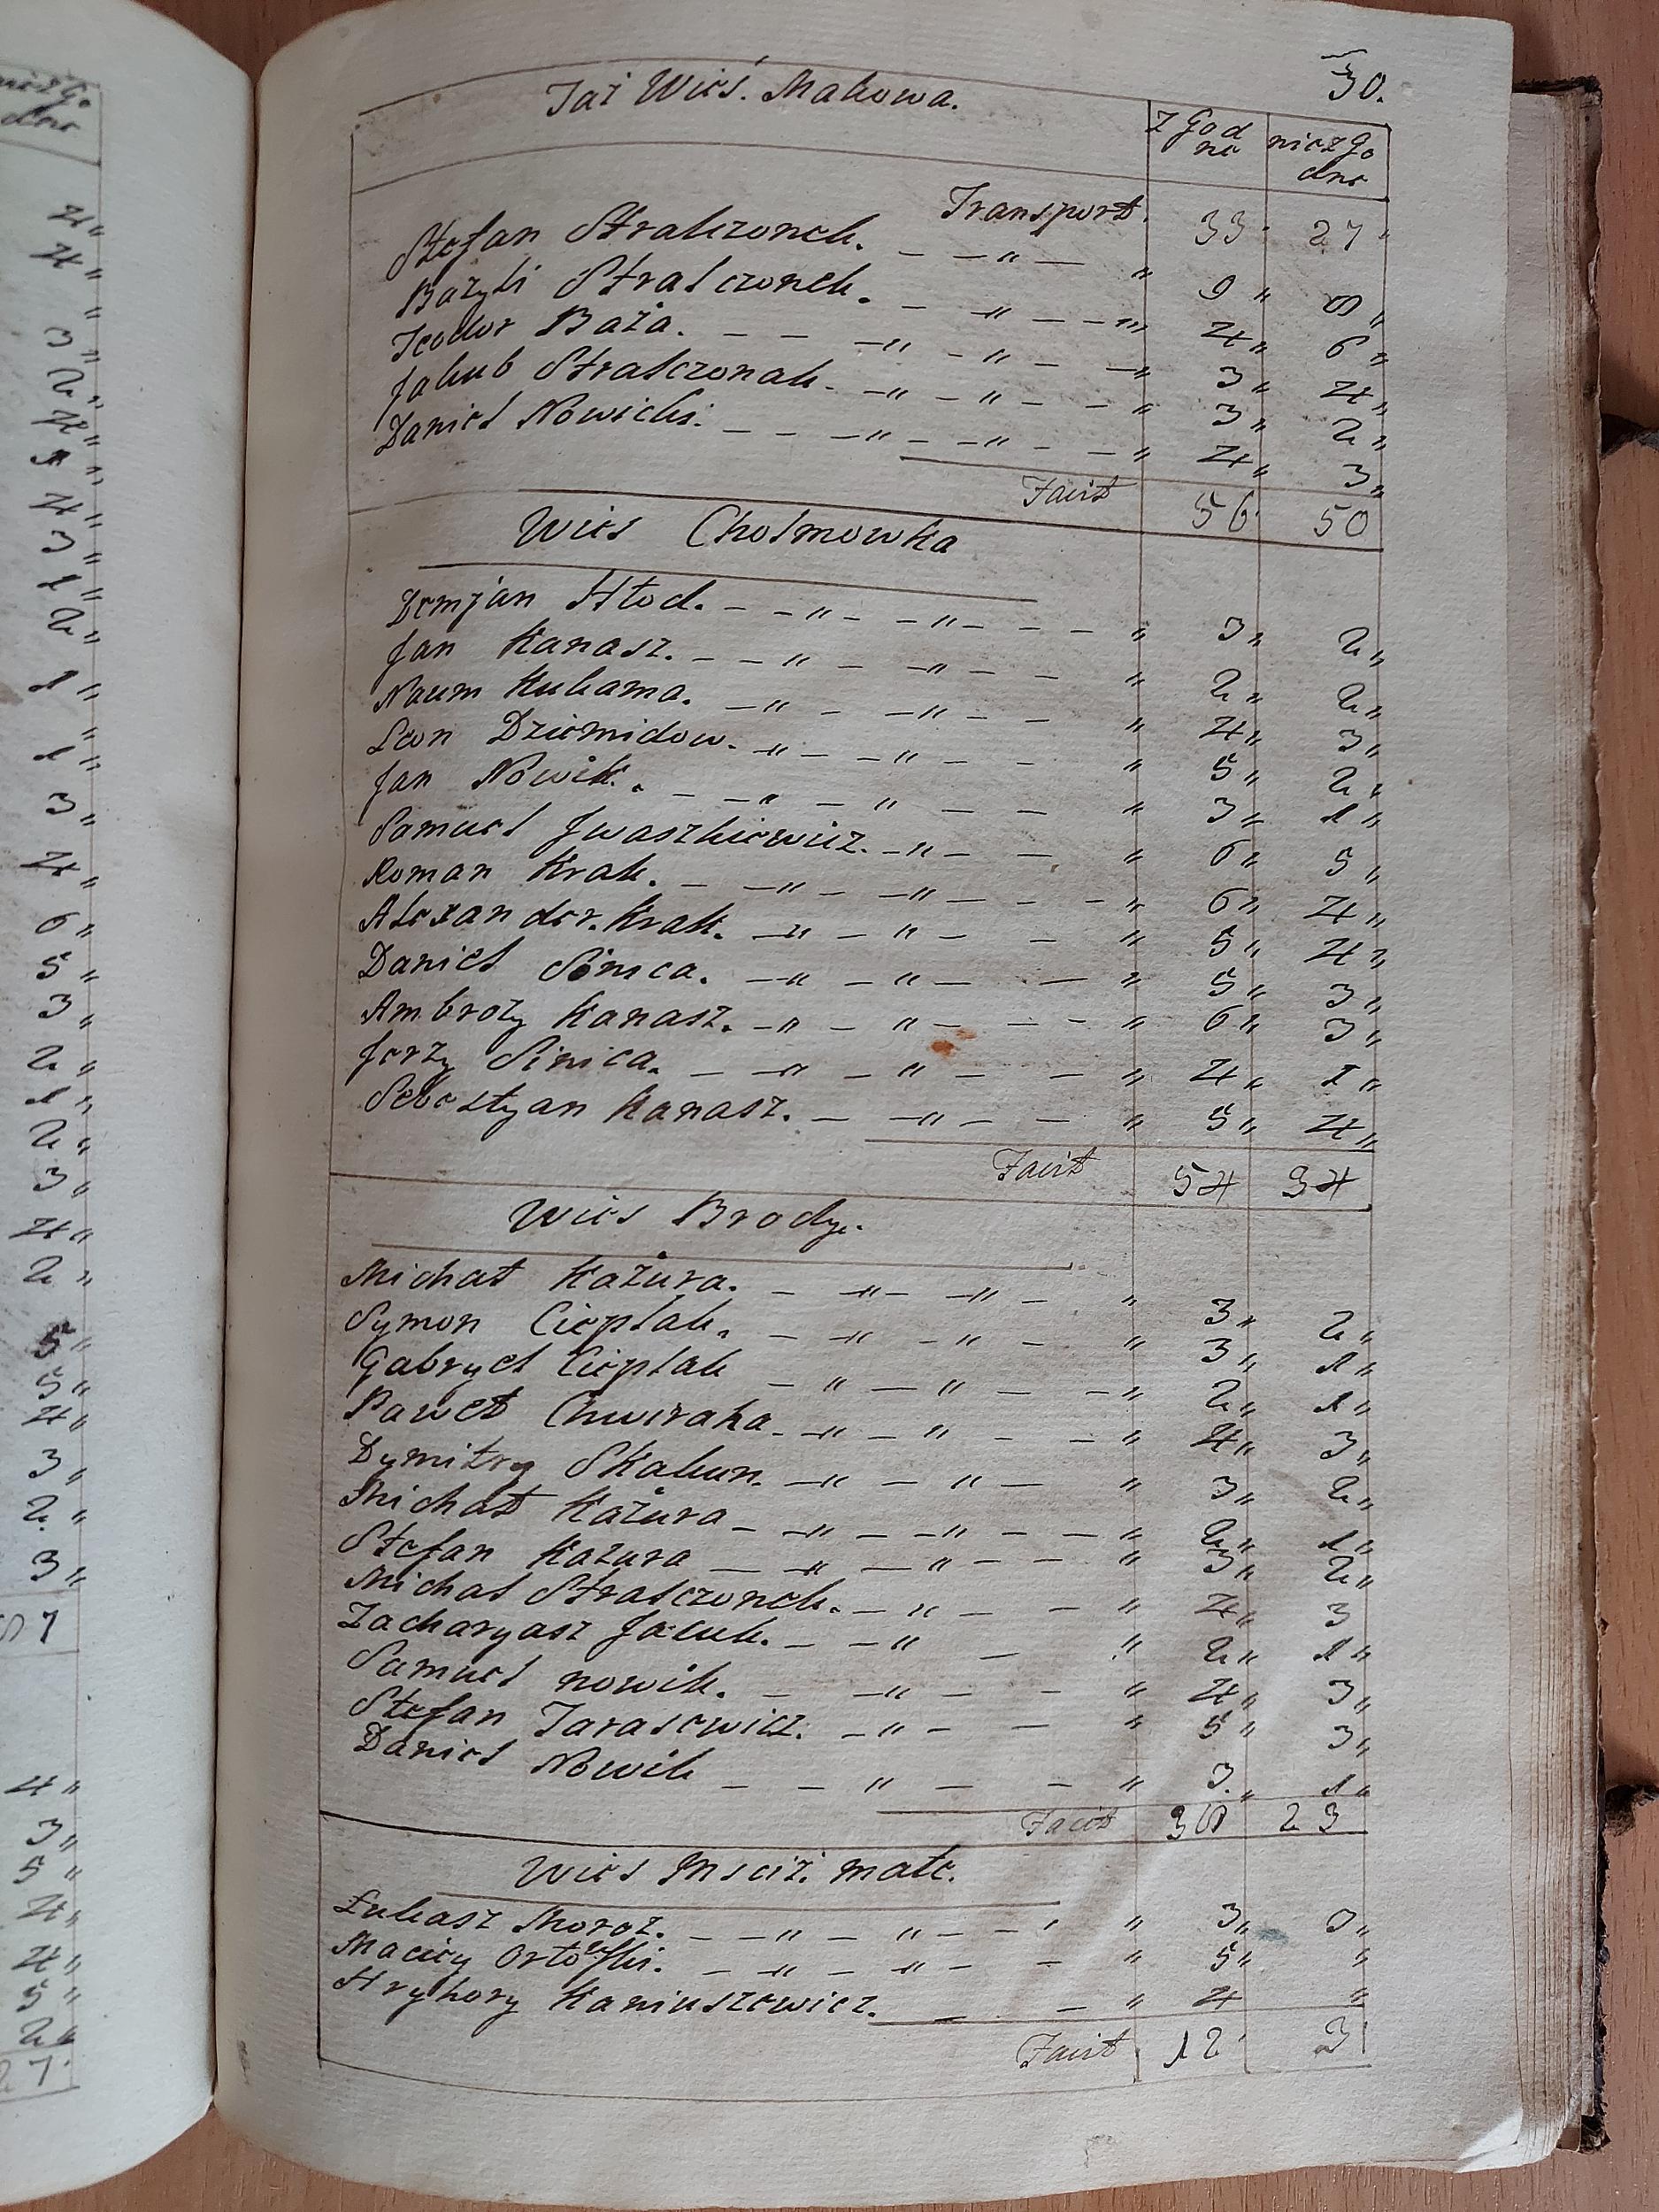 30.
Taż Wieś. Makowa.
zgod
ne
niezgo
dne
Transport. 33 27
Stefan Stralczonek. 9 „ 8 „
Bazyli Stralczonek. 4 „ 6 „
Teodor Baża. 3 „ 4 „
Jakub Stralczonak. 3 „ 2 „
Daniel Nowicki. 4 „ 3 „
Facit 56 50
Wieś Cholmowka
Demjan Hłod. 3 „ 2 „
Jan Kanasz. 2 „ 2 „
Naum Kukama. 4 „ 3 „
Leon Dziemidow. 5 „ 2 „
Jan Nowik. 3 „ 1 „
Samuel Jwaszkiewicz. 6 „ 5 „
Roman Krak. 6 „ 4 „
Alexander Krak. 5 „ 4 „
Daniel Sinica. 5 „ 3 „
Ambroży Kanasz. 6 „ 3 „
Jerzy Sinica. 4 „ 1 „
Sebestyan Kanasz. 5 „ 4 „
Facit 54 34
Wieś Brody.
Michał Każura. 3 „ 2 „
Symon Cieplak. 3 „ 1 „
Gabryel Cieplak 2 „ 1 „
Paweł 4 „ 3 „
Dymitry Skakun. 3 „ 2 „
Michał Każura 2 „ 1 „
Stefan Każura 3 „ 2 „
Michał Stralczonek. 4 „ 3
Zacharyasz 2 „ 1 „
Samuel nowik. 4 „ 3 „
Stefan Tarasewicz. 5 „ 3 „
Daniel Nowik 3 „ 1 „
Facit 38 23
Wieś Mściż. małe.
Łukasz Moroz. 3 „ 3 „
Maciey 5 „ „
Hryhory Kaniuszewicz. 4 „
Facit 12 3
4 „
4 „
„
3 „
2 „
4 „
4 „
3 „
1 „
2 „
1 „
„
1 „
3 „
4 „
6 „
5 „
3 „
2 „
1 „
2 „
3 „
4 „
2 „
5 „
5 „
4 „
3 „
2 „
3 „
87
4 „
3 „
5 „
4 „
4 „
5 „
2 „
27